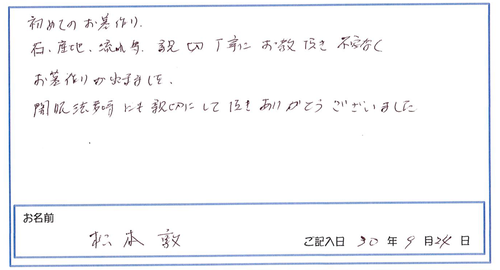 初めてのお墓作り.
石、産地、流れ等、親切丁寧にお教え頂き 不安なく
お墓作りが出来ました.
開眼法要時にも親切にして頂きありがとうございました
お名前
松本 敦
ご記入日 30 年 9 月 24 日